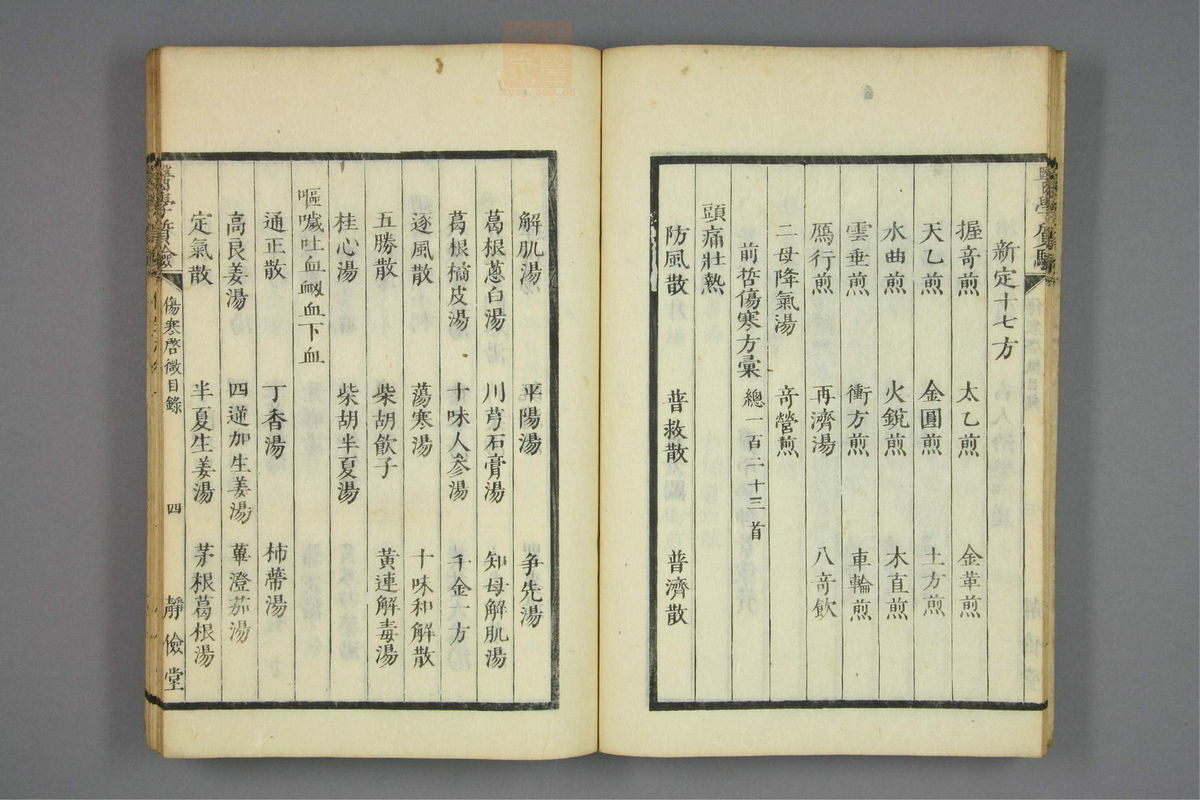 新定十七方
握奇煎 太乙煎 金華煎
天乙煎 金圓煎 土方煎
水曲煎 火銳煎 木直煎
雲垂煎 衝方煎 車輪煎
鴈行煎 再濟湯 八奇飲
二母降氣湯 奇營煎
前哲傷寒方彙 總一百二十三首
頭痛壯熱
防風散 普救散 普濟散
解肌湯 平陽湯 争先湯
葛根蔥白湯 川芎石膏湯 知母解肌湯
葛根橘皮湯 十味人參湯 千金一方
逐風散 蕩寒湯 十味和解散
五勝散 柴胡飲子 黃連解毒湯
桂心湯 柴胡半夏湯
嘔噦吐血衂血下血
通正散 丁香湯 柿蒂湯
高良姜湯 四逆加生姜湯 蓽澄茄湯
定氣散 半夏生姜湯 茅根葛根湯
傷寒啓微目錄 四 靜儉堂